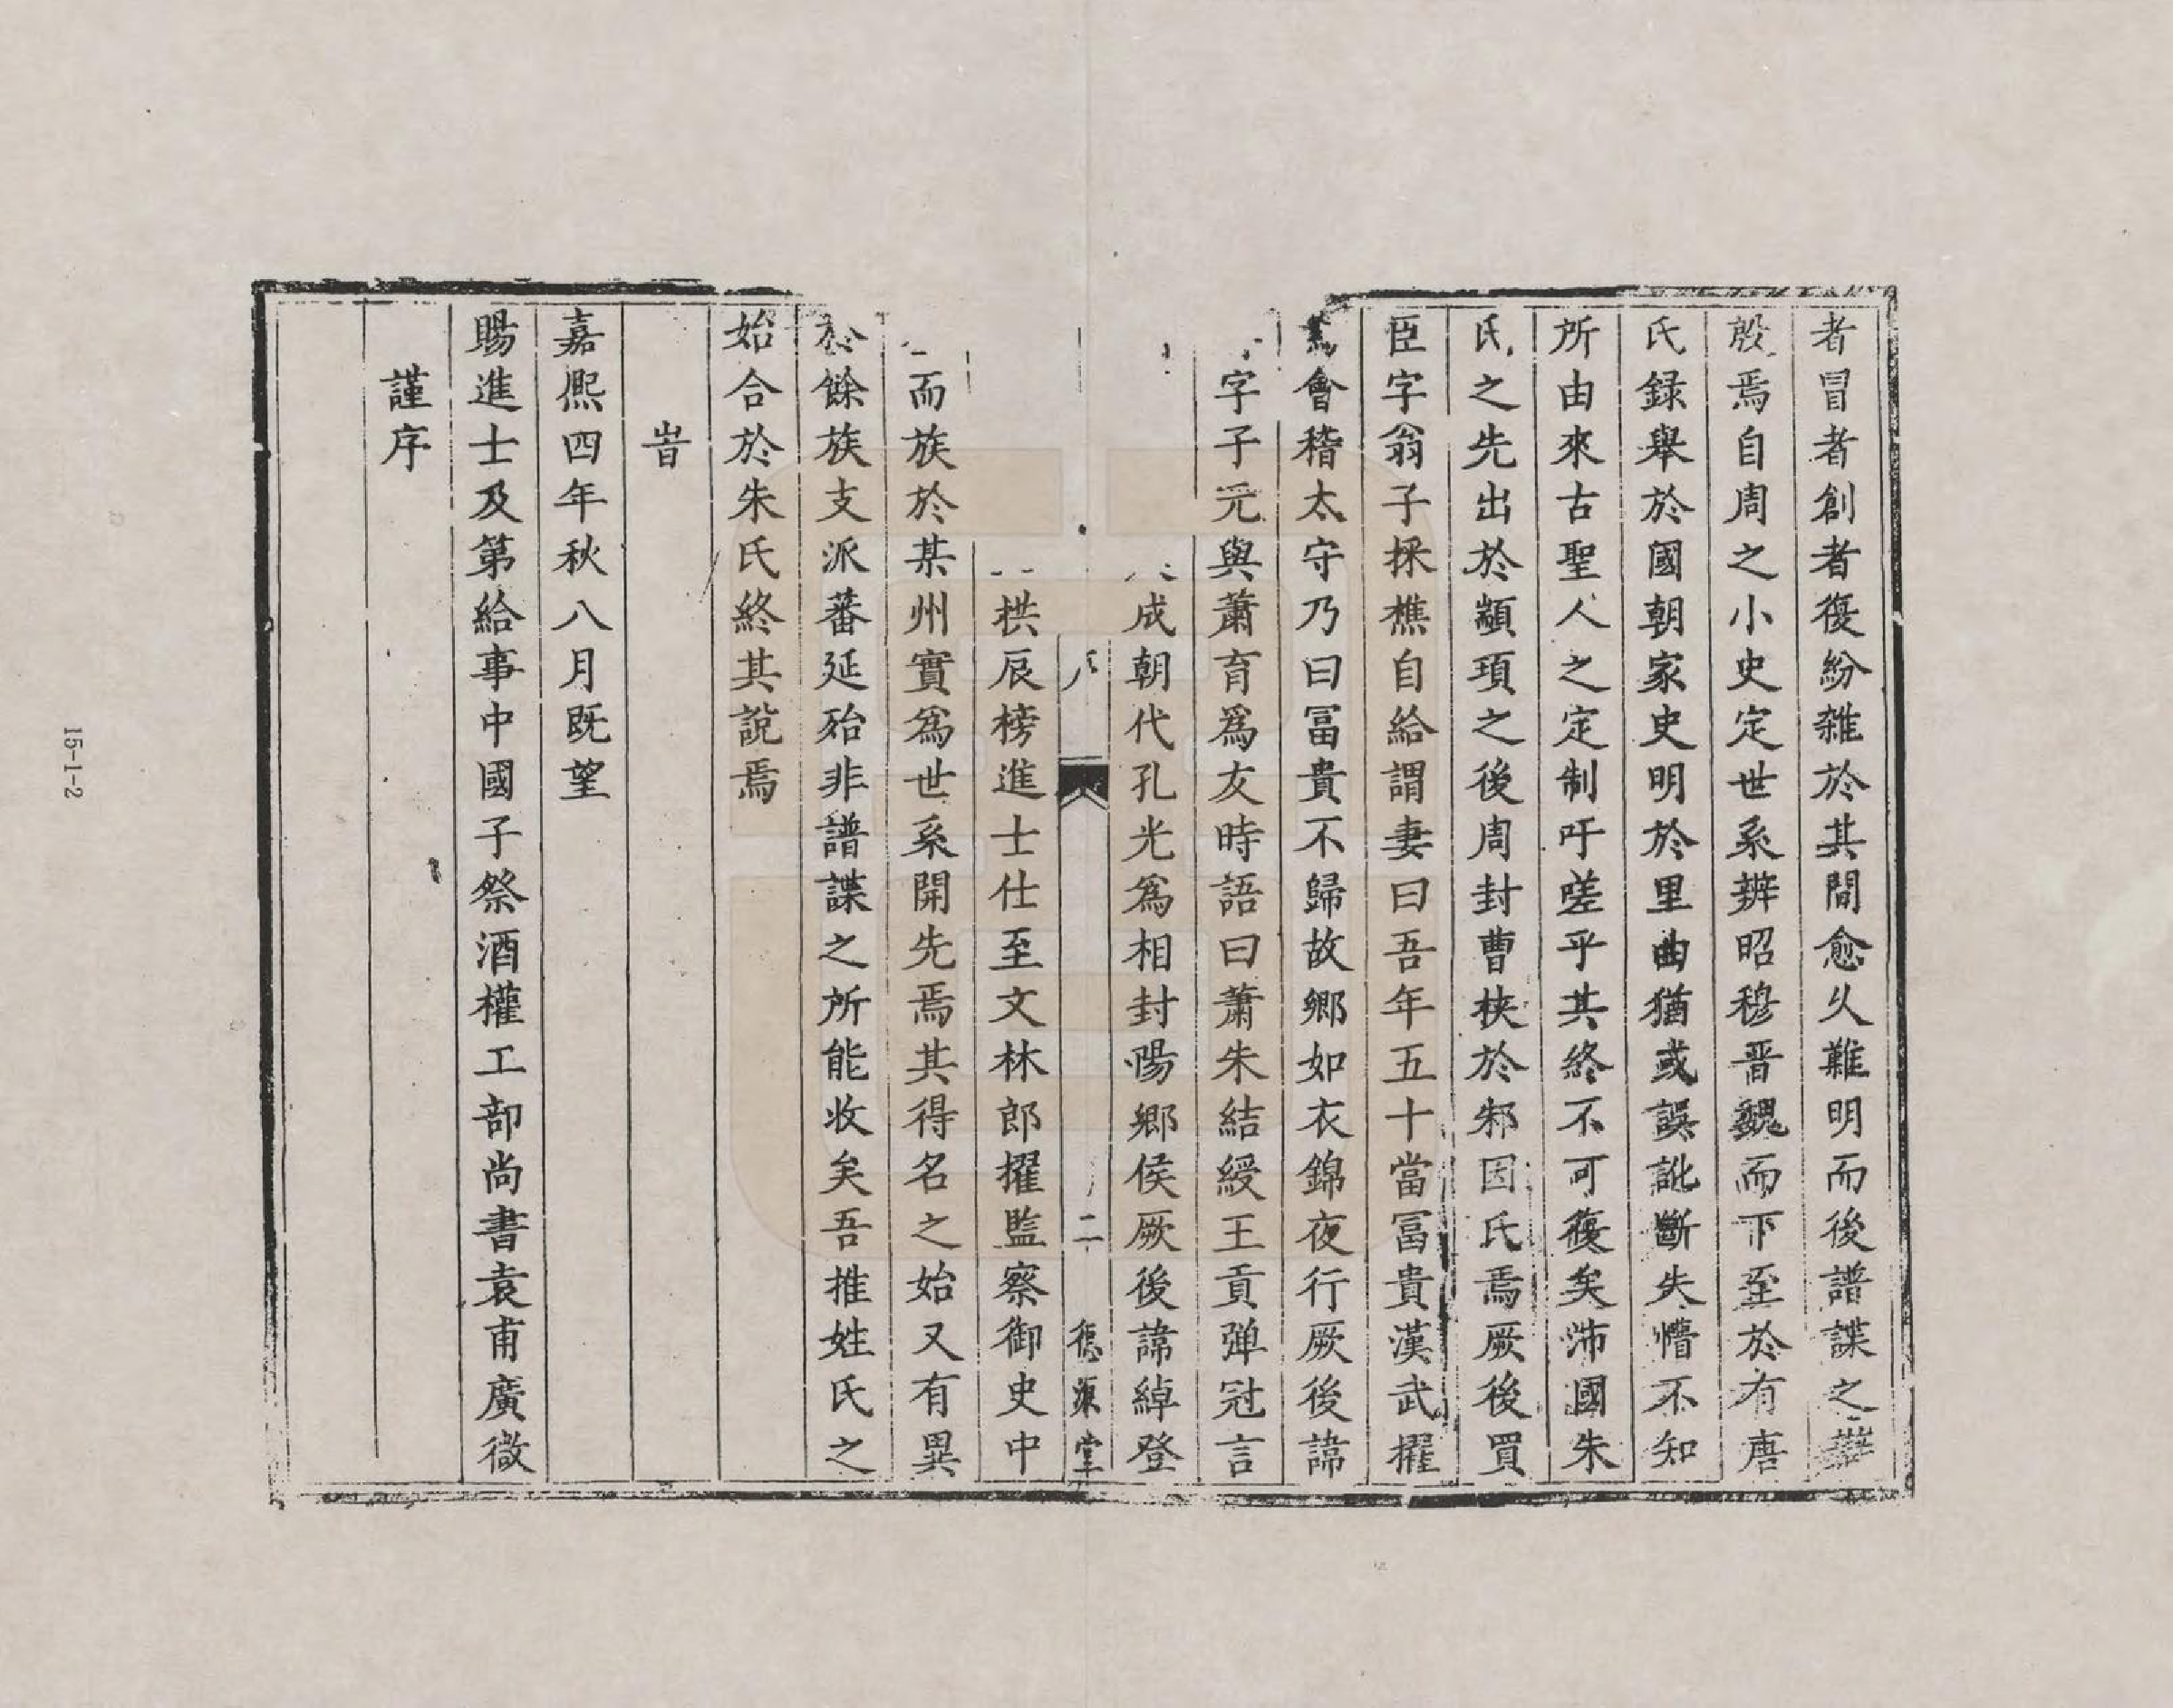 者冒者創者復紛雜於其間愈乆難明而後譜諜之辯
殷焉自周之小史定世系辨昭穆晋魏而下至於有唐
氏録舉於國朝家史明於里曲猶或誤訛斷失懵不知
所由來古聖人之定制吁嗟乎其終不可復矣沛國朱
氏之先出於顓頊之後周封曹挾於邾因氏焉厥後買
臣字翁子採樵自給謂妻曰吾年五十當冨貴漢武擢
爲會稽太守乃曰冨貴不歸故郷如衣錦夜行厥後諱
字子元與蕭育爲友時語曰蕭朱結綬王貢弹冠言
成朝代孔光爲相封陽郷侯厥後諱綽登
序 二 德源堂
拱辰榜進士仕至文林郎擢監察御史中
而族於某州實爲世系開先焉其得名之始又有異
於餘族支派蕃延殆非譜諜之所能收矣吾推姓氏之
始合於朱氏終其說焉
旹
嘉熈四年秋八月既望
賜進士及第給事中國子祭酒權工部尚書袁甫廣微
謹序
15-1-2